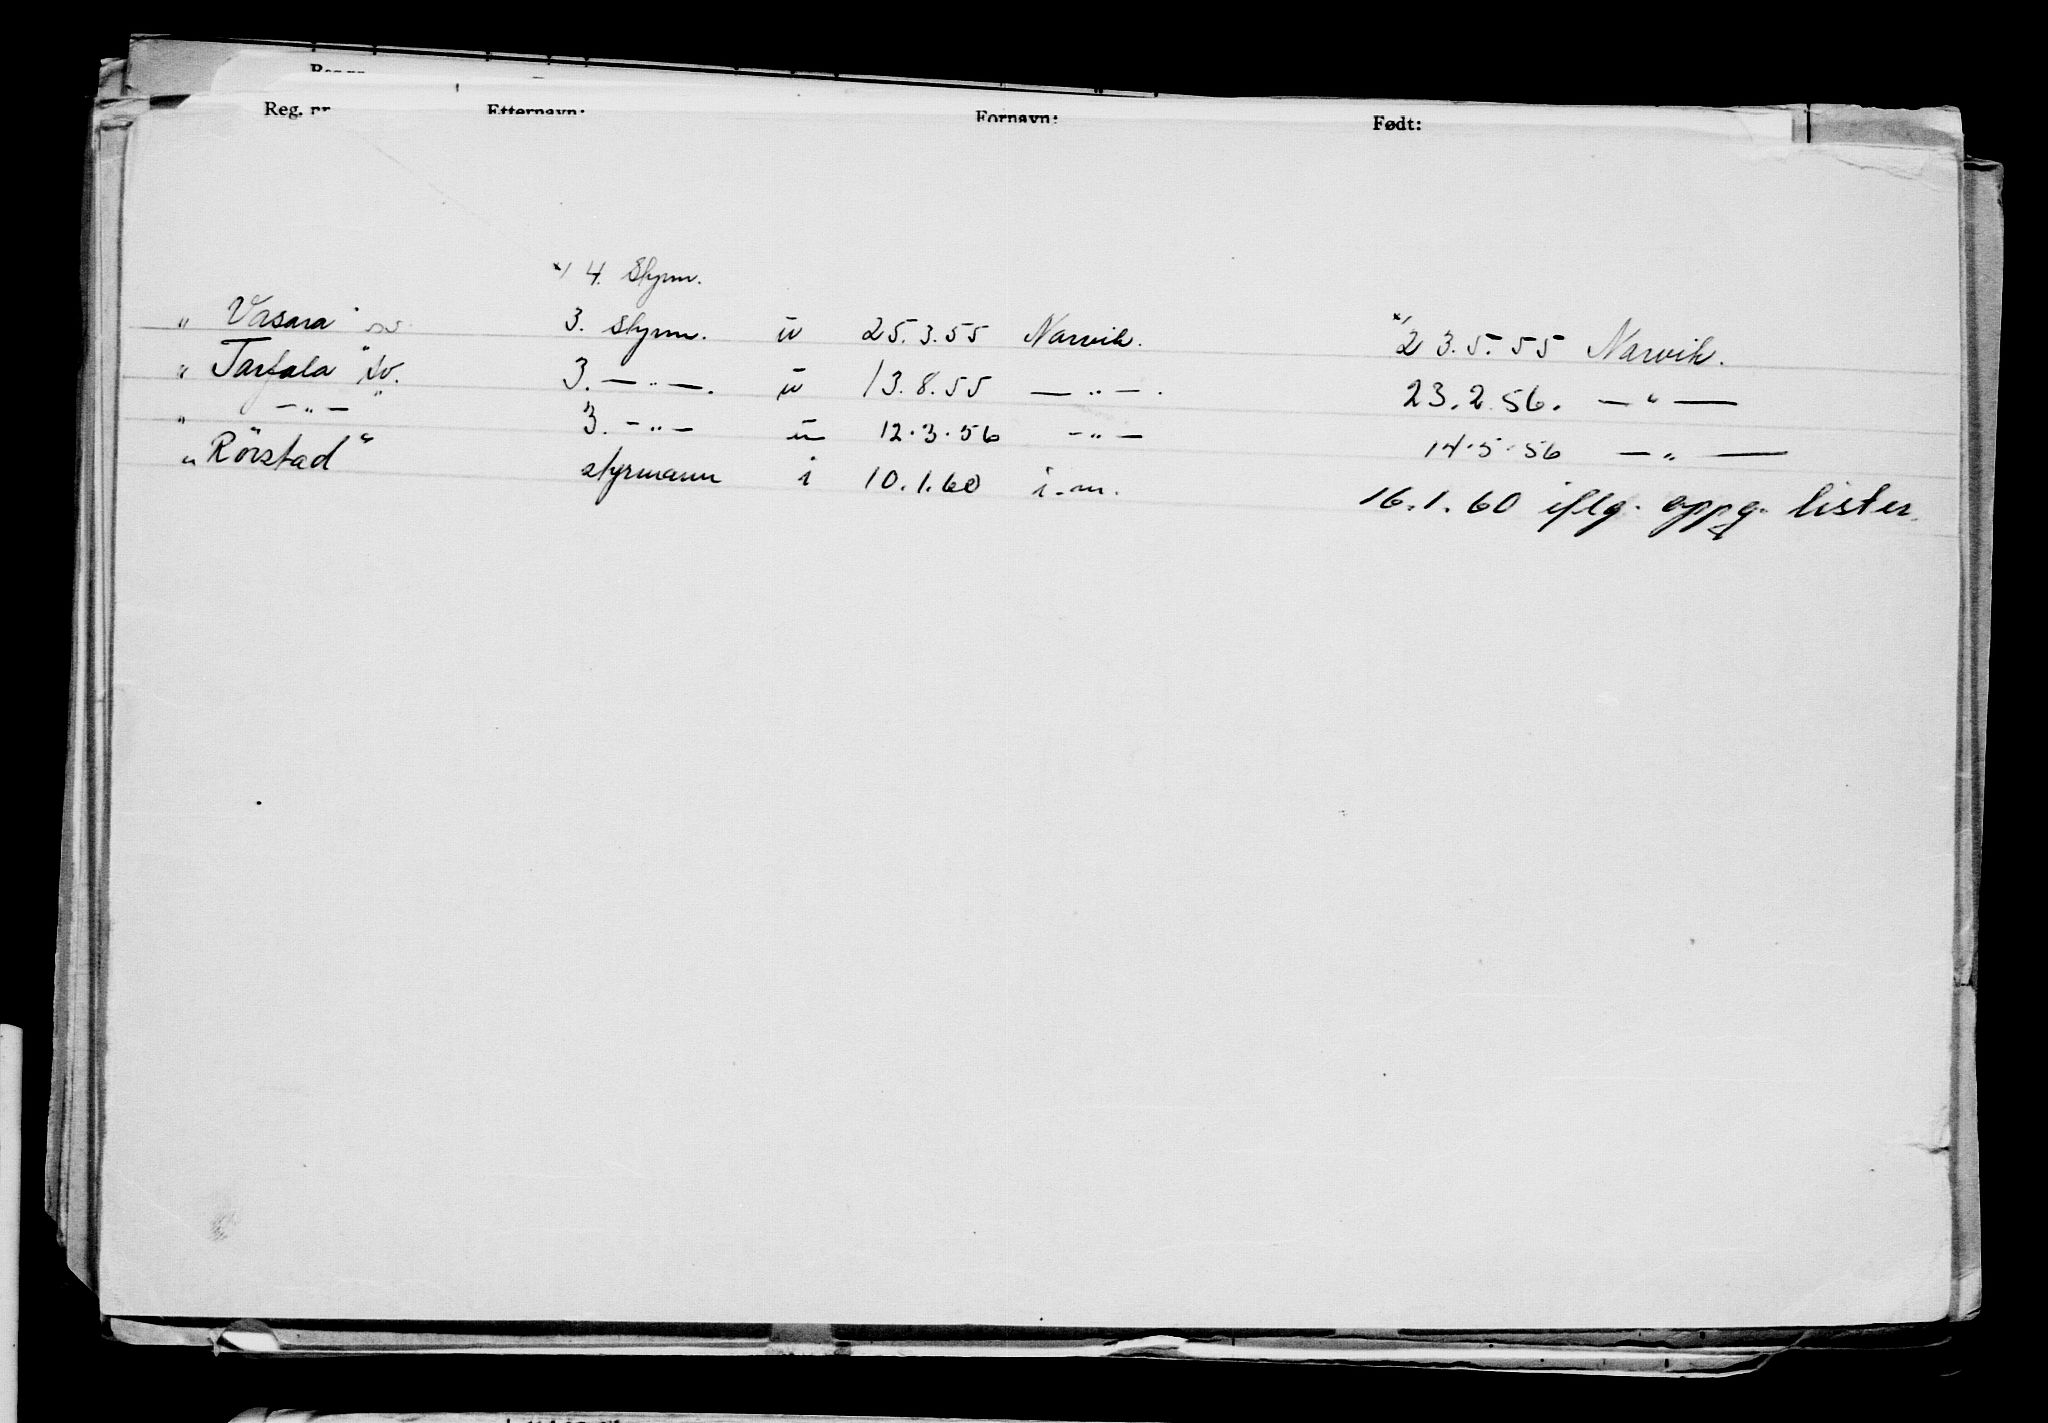 Reg. nr Etternavn: Fornavn: Født:
x/ 4. Styrm.
"Vasara" sv. 3. styrm. u 25.3.55 Narvik. x/ 23.5.55 Narvik.
"Tarfala" sv. 3. —"—. u 13.8.55 —"—. 23.2.56. —"—
" —"— " 3. —"— u 12.3.56 —"— 14.5.56 —"—
"Rörstad" styrmann i 10.1.60 i.m. 16.1.60 iflg. oppg. lister.